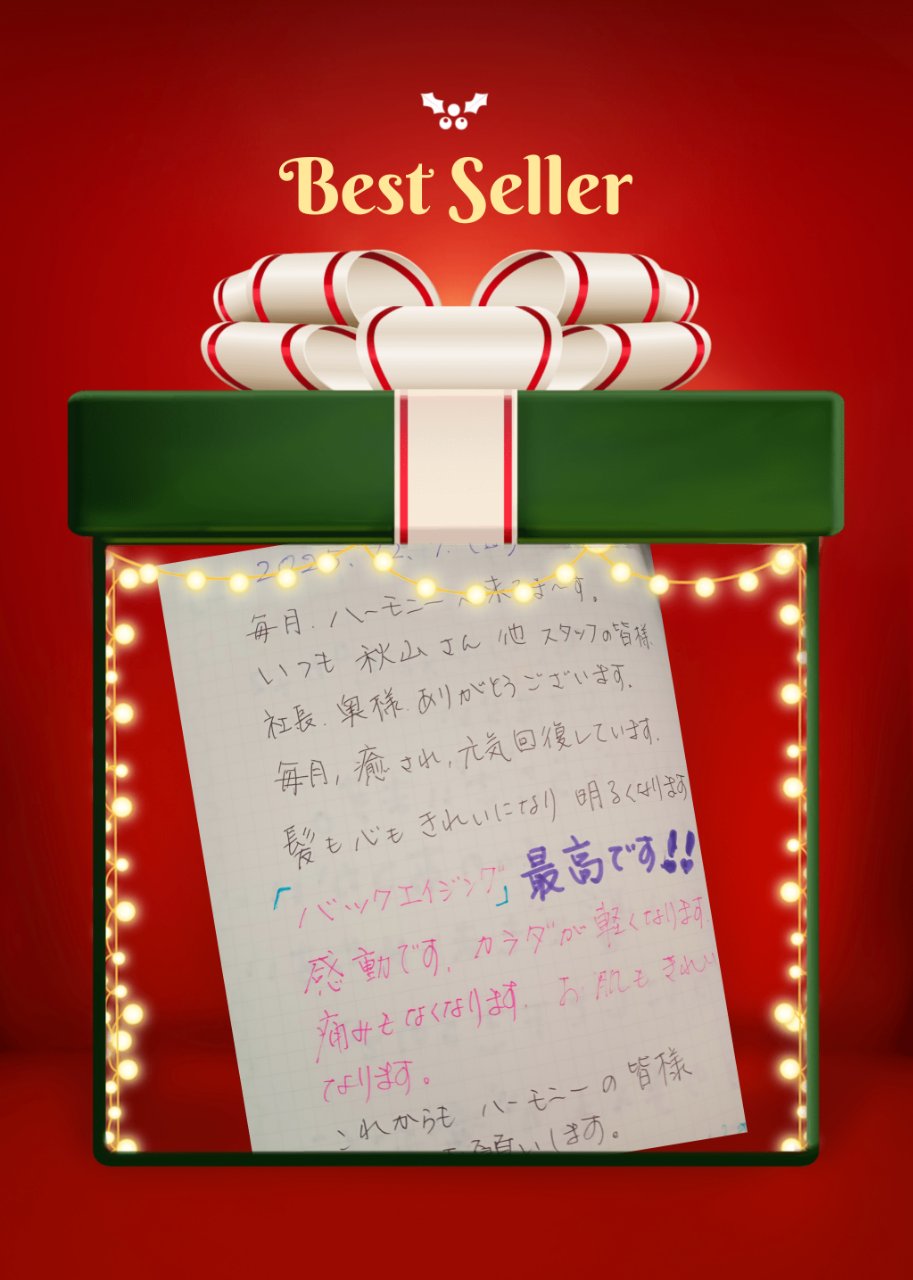 Best Seller
毎月、ハーモニーへ来てま〜す。
いつも 秋山さん 他 スタッフの皆様
社長、奥様、ありがとうございます。
毎月、癒され、元気回復しています。
髪も心も きれいになり 明るくなります
「バックエイジング」最高です!!
感動です。カラダが軽くなります。
痛みもなくなります。お肌もきれいに
なります。
これからも ハーモニーの皆様
願いします。